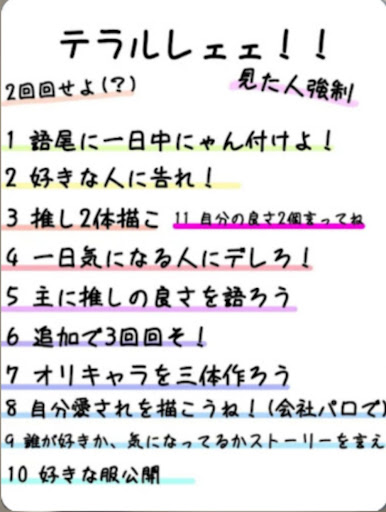 テラルレェェ!!
2回回せよ(?)
見た人強制
1 語尾に一日中にゃん付けよ!
2 好きな人に告れ!
3 推し2体描こ
11 自分の良さ2個言ってね
4 一日気になる人にデレろ!
5 主に推しの良さを語ろう
6 追加で3回回そ!
7 オリキャラを三体作ろう
8 自分愛されを描こうね!(会社パロで)
9 誰が好きか、気になってるかストーリーを言え
10 好きな服公開